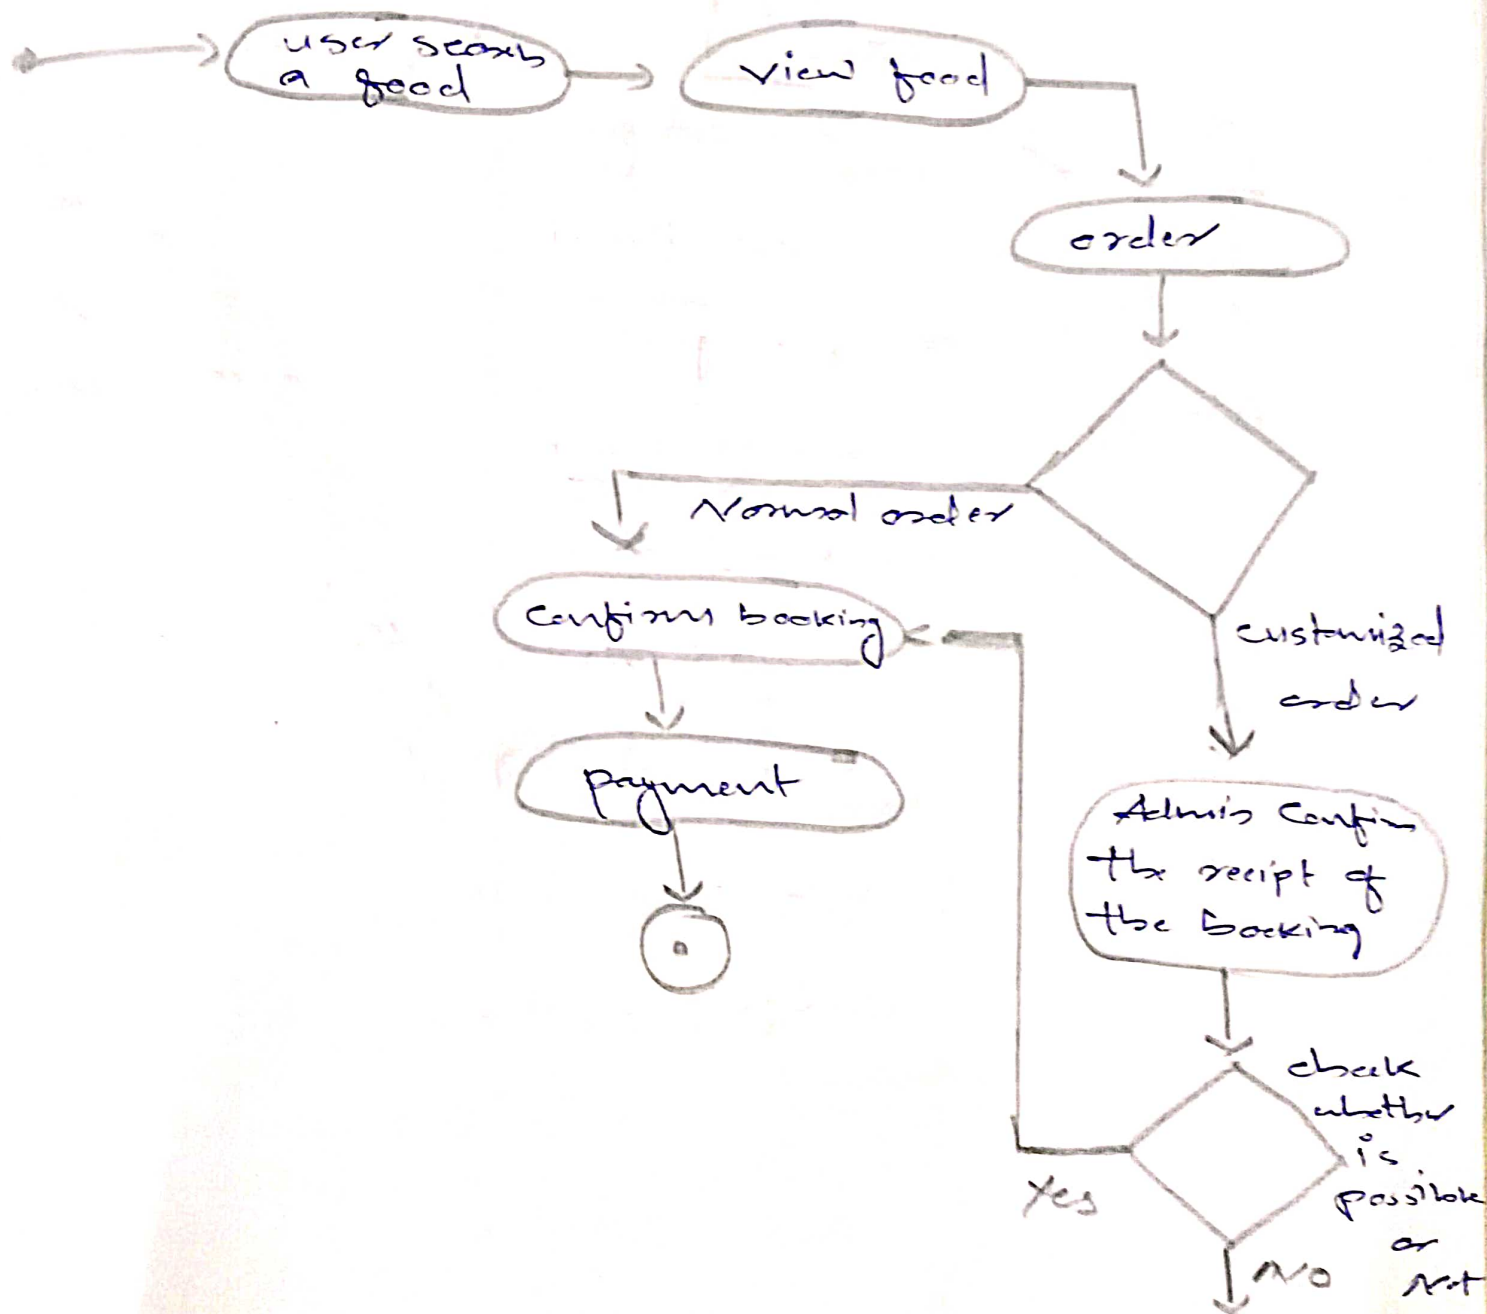 user search
a food
view food
order
Normal order
Confirm booking
customized
order
payment
Admin Confirm
the recipt of
the booking
check
whether
is
possible
or
Not
Yes
No